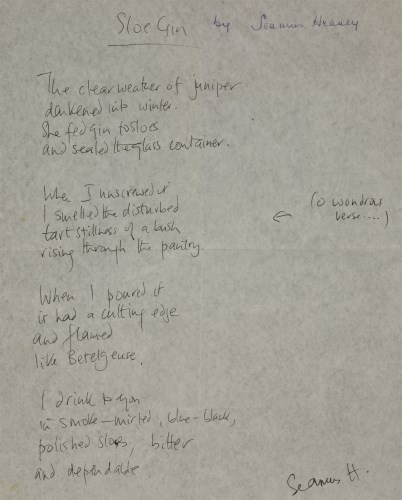 Sloe Gin by Seamus Heaney
The clear weather of juniper
darkened into winter.
She fed gin to sloes
and sealed the glass container.
When I unscrewed it
I smelled the disturbed
tart stillness of a bush
rising through the pantry.
← (O wondrous
verse....)
When I poured it
it had a cutting edge
and flamed
like Betelgeuse.
I drink to you
in smoke-mirled, blue-black,
polished sloes, bitter
and dependable
Seamus H.